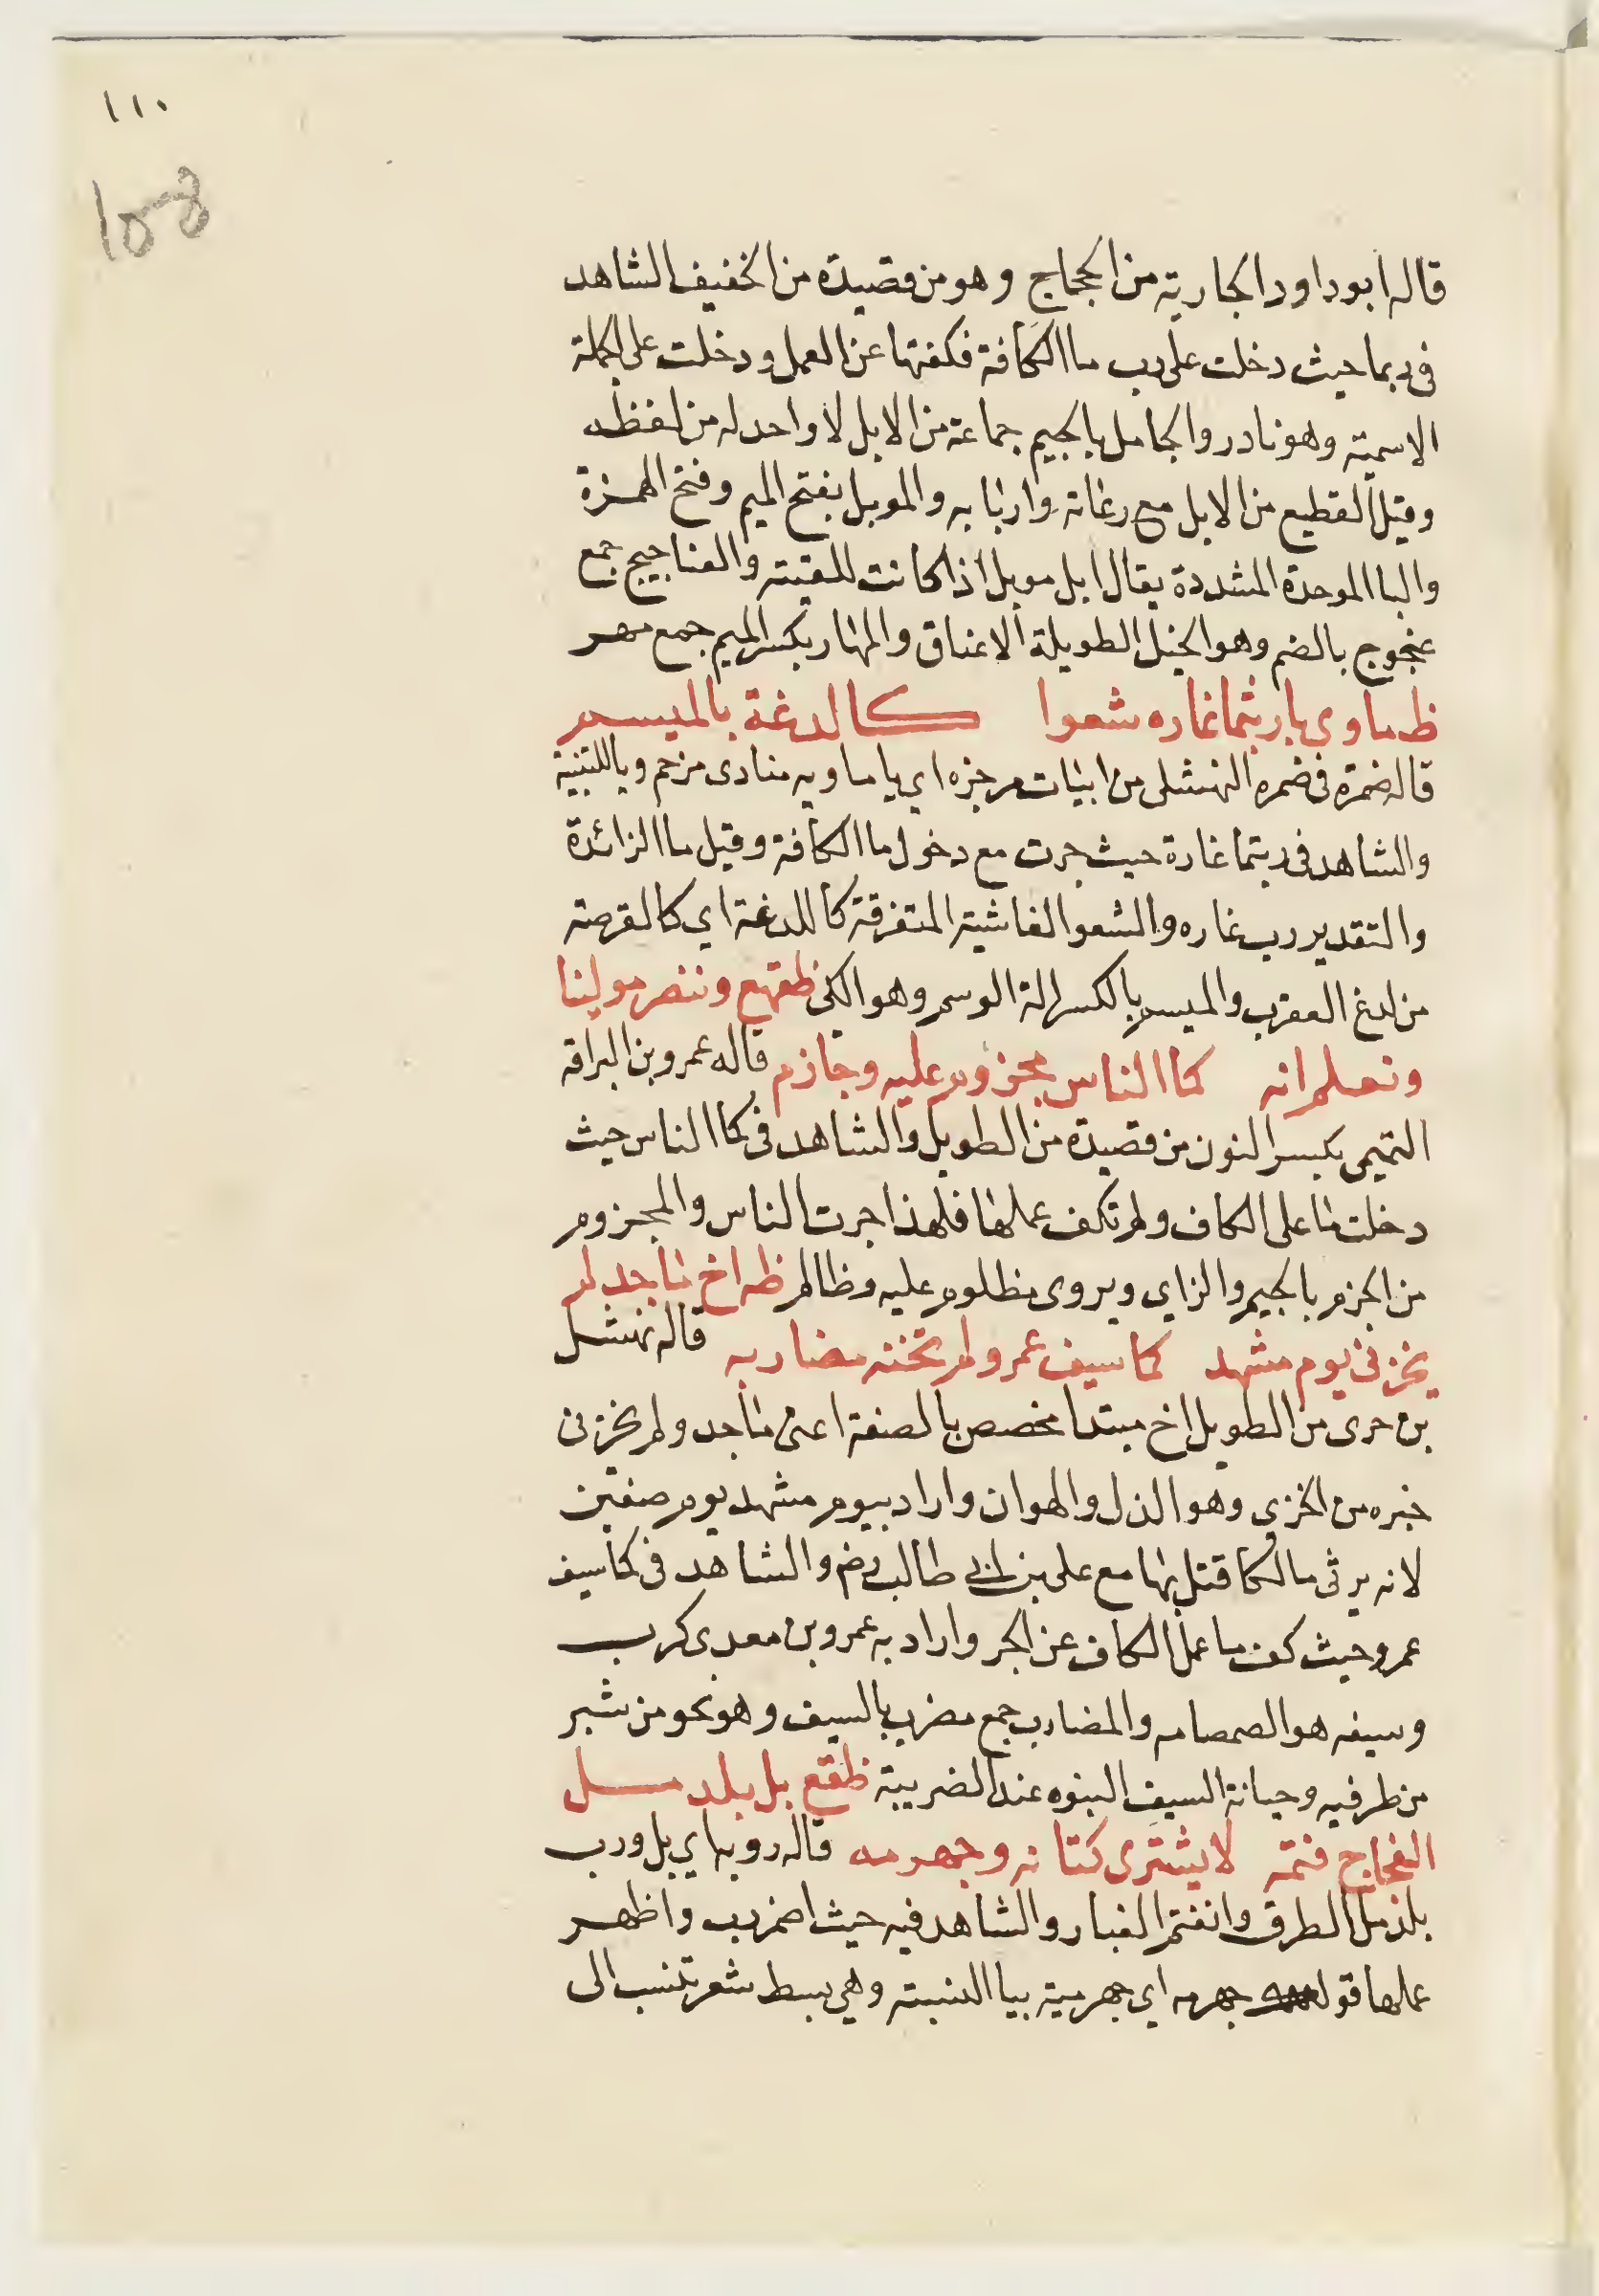 ١١٠
108
قاله ابو داود الجارية من الحجاج وهو من قصيدة من الخفيف الشاهد
فى ربما حيث دخلت على رب ما الكافة فكفتها عن العمل ودخلت على الجملة
الاسمية وهو نادر والجامل بالجيم جماعة من الابل لا واحد له من لفظه
وقيل القطيع من الابل مع رعاته واربابه والموبل بفتح الميم وفتح الهمزة
والبا الموحدة المشددة يقال ابل موبل اذا كانت للقنية والعناجيج جمع
عنجوج بالضم وهو الخيل الطويلة الاعناق والمهار بكسر الميم جمع مهر
ظ ماوى يا ربتما غاره شعوا كالدغة بالميسم
قاله ضمرة فى ضمره النهشلى من ابيات مرجزه اي يا ماويه منادى مرخم ويا للتنبيه
والشاهد فى ربتما غارة حيث جرت مع دخول ما الكافة وقيل ما الزائدة
والتقدير رب غاره والشعوا الفاشية المتفرقة كاللدغة اي كالقرصة
من لدغ العقرب والميسم بالكسر الة الوسم وهو الكى ظقهع وننصر مولينا
ونعلم انه كما الناس مجزوم عليه وجازم قاله عمرو بن البراقة
التميمى بكسر النون من قصيدة من الطويل والشاهد فى كما الناس حيث
دخلت ما على الكاف ولم تكف عملها فلهذا جرت الناس والمجزوم
من الجزم بالجيم والزاي ويروى مظلوم عليه وظالم ظه اخ ماجد لم
يخزنى يوم مشهد كما سيف عمرو لم تخنه مضاربه قاله نهشل
بن حرى من الطويل اخ مبتدا مخصص بالصفة اعنى ماجد ولم يخزنى
خبره من الخزى وهو الذل والهوان واراد بيوم مشهد يوم صفين
لانه يرثى مالكا قتل بها مع على بن ابي طالب رضه والشاهد فى كما سيف
عمرو حيث كف ما عمل الكاف عن الجر واراد به عمرو بن معدى كرب
وسيفه هو الصمصامه والمضارب جمع مضرب بالسيف وهو نحو من شبر
من طرفيه وخيانة السيف النبوه عند الضريبة ظقع بل بلد مل
الفجاج قتمه لا يشترى كتانه وجهرمه قاله روبه اي بل ورب
بلد مل الطرق وانقتم الغبار والشاهد فيه حيث اضمر رب واظهر
عملها قوله جهرمه اي جهرمية بيا النسبة وهي بسط شعر تنسب الى